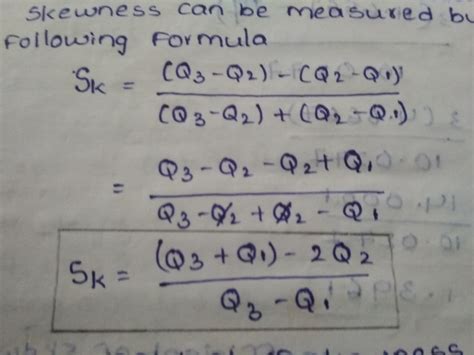 Skewness can be measured by
following formula
Sk = (Q3 - Q2) - (Q2 - Q1) / (Q3 - Q2) + (Q2 - Q1)
= Q3 - Q2 - Q2 + Q1 / Q3 - Q2 + Q2 - Q1
Sk = (Q3 + Q1) - 2Q2 / Q3 - Q1